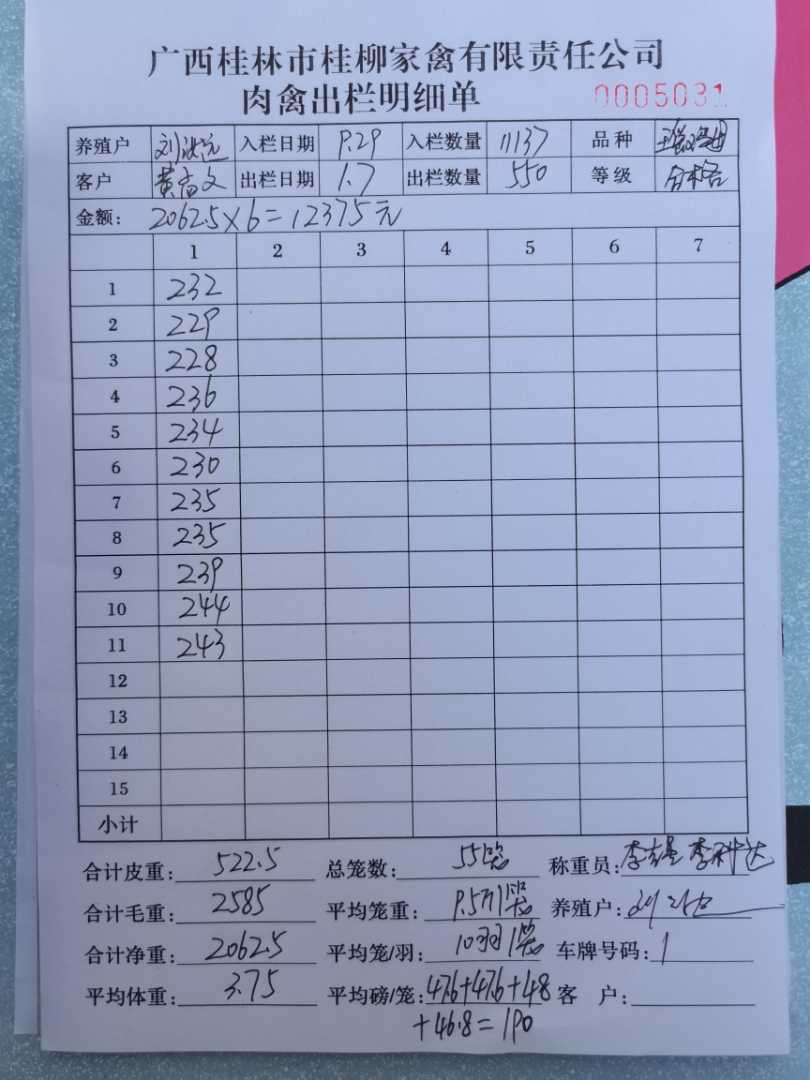 广西桂林市桂柳家禽有限责任公司
肉禽出栏明细单 0005031
养殖户 入栏日期 9.29 入栏数量 11137 品种
客户 出栏日期 1.7 出栏数量 550 等级 合格
金额: 2062.5×6=12375元
1 2 3 4 5 6 7
1 232
2 229
3 228
4 236
5 234
6 230
7 235
8 235
9 239
10 244
11 243
12
13
14
15
小计
合计皮重: 522.5 总笼数: 55笼 称重员:
合计毛重: 2585 平均笼重: 9.5斤/笼 养殖户:
合计净重: 2062.5 平均笼/羽: 10羽/笼 车牌号码:
平均体重: 3.75 平均磅/笼: 47.6+47.6+48 客 户:
+46.8=190